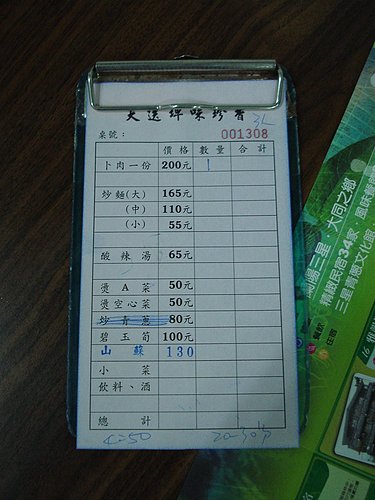 天送埤味珍香
桌號：
001308
價格 數量 合計
卜肉一份 200元 1
炒麵(大) 165元
(中) 110元
(小) 55元
酸辣湯 65元
燙A菜 50元
燙空心菜 50元
炒青蔥 80元
碧玉筍 100元
山蘇 130
小菜
飲料、酒
總計
4:50
蘭陽三星．大同之鄉
精緻民宿34家
三星青蔥文化館
住宿